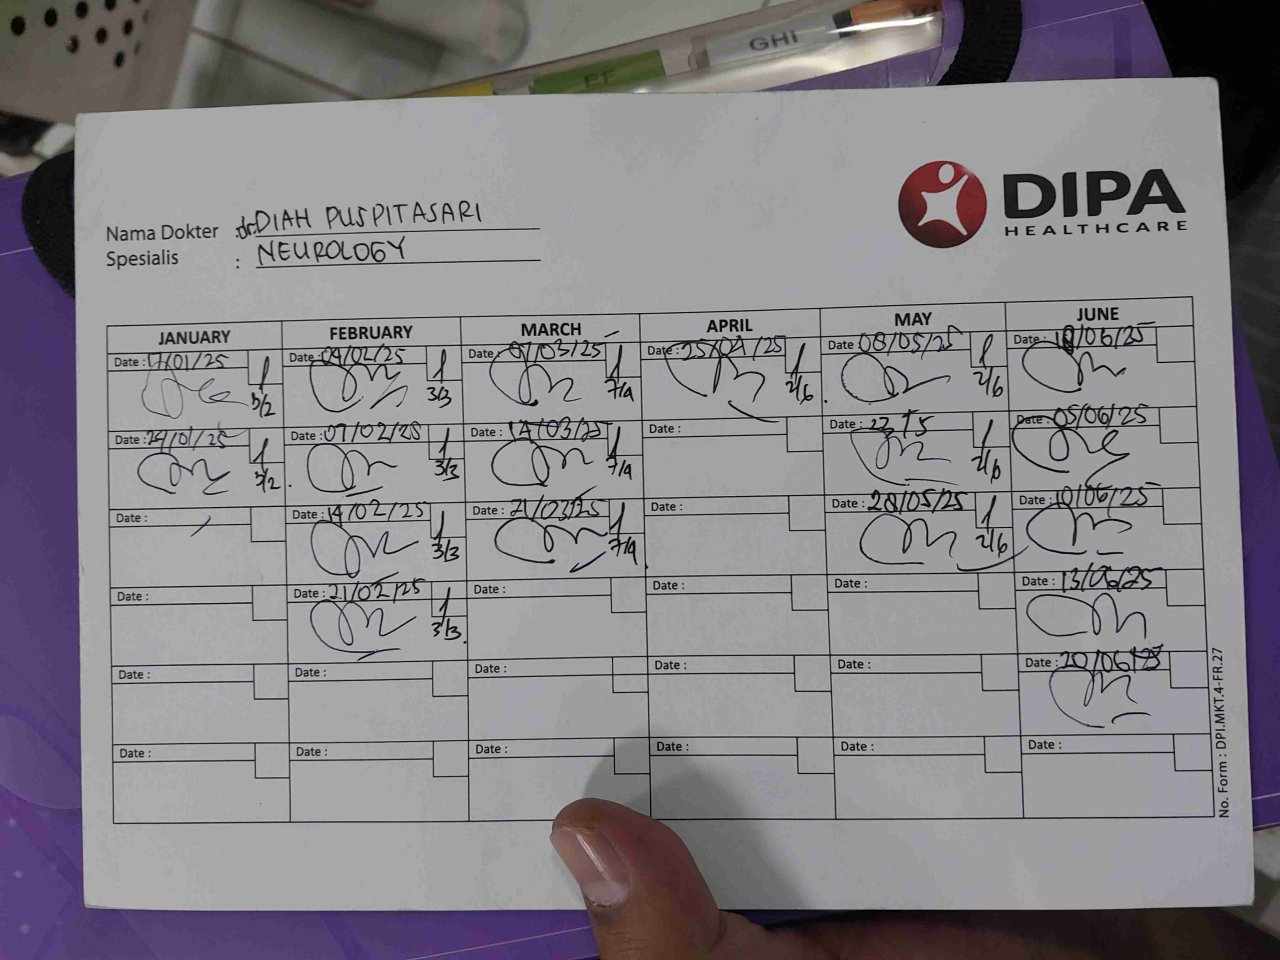 GHI
DIPA
HEALTHCARE
Nama Dokter : dr. DIAH PUSPITASARI
Spesialis : NEUROLOGY
JANUARY FEBRUARY MARCH APRIL MAY JUNE
Date : 17/01/25 Date : 04/02/25 Date : 07/03/25 Date : 25/04/25 Date : 08/05/25 Date : /06/25
3/2 3/3 7/4 2/6 2/6
Date : 24/01/25 Date : 07/02/25 Date : 14/03/25 Date : Date : 23 Date : 05/06/25
3/2 3/3 7/4 2/6
Date : Date : 14/02/25 Date : 21/03/25 Date : Date : 28/05/25 Date : 10/06/25
3/3 7/4 2/6
Date : Date : 21/02/25 Date : Date : Date : Date : 13/06/25
3/3
Date : Date : Date : Date : Date : Date : 20/06/25
Date : Date : Date : Date : Date : Date :
No. Form : DPI.MKT.4-FR.27